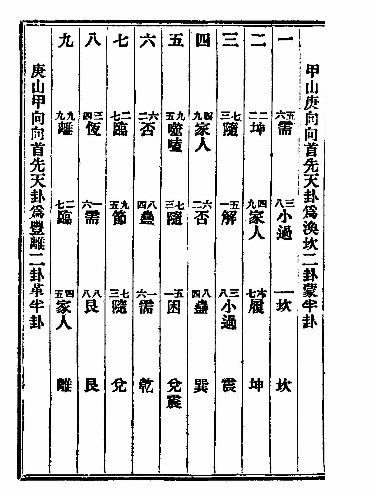 甲山庚向向首先天卦爲渙坎二卦蒙半卦
一 五六需 三八小過 一一坎 坎
二 二二坤 四九家人 六七履 坤
三 七三隨 五一解 三八小過 震
四 四九家人 六二否 八四蠱 巽
五 九五噬嗑 七三隨 五一困 兌震
六 六二否 八四蠱 一六需 乾
七 二七臨 九五節 七三隨 兌
八 三四恆 一六需 八八艮 艮
九 九九離 二七臨 四五家人 離
庚山甲向向首先天卦爲豐離二卦革半卦